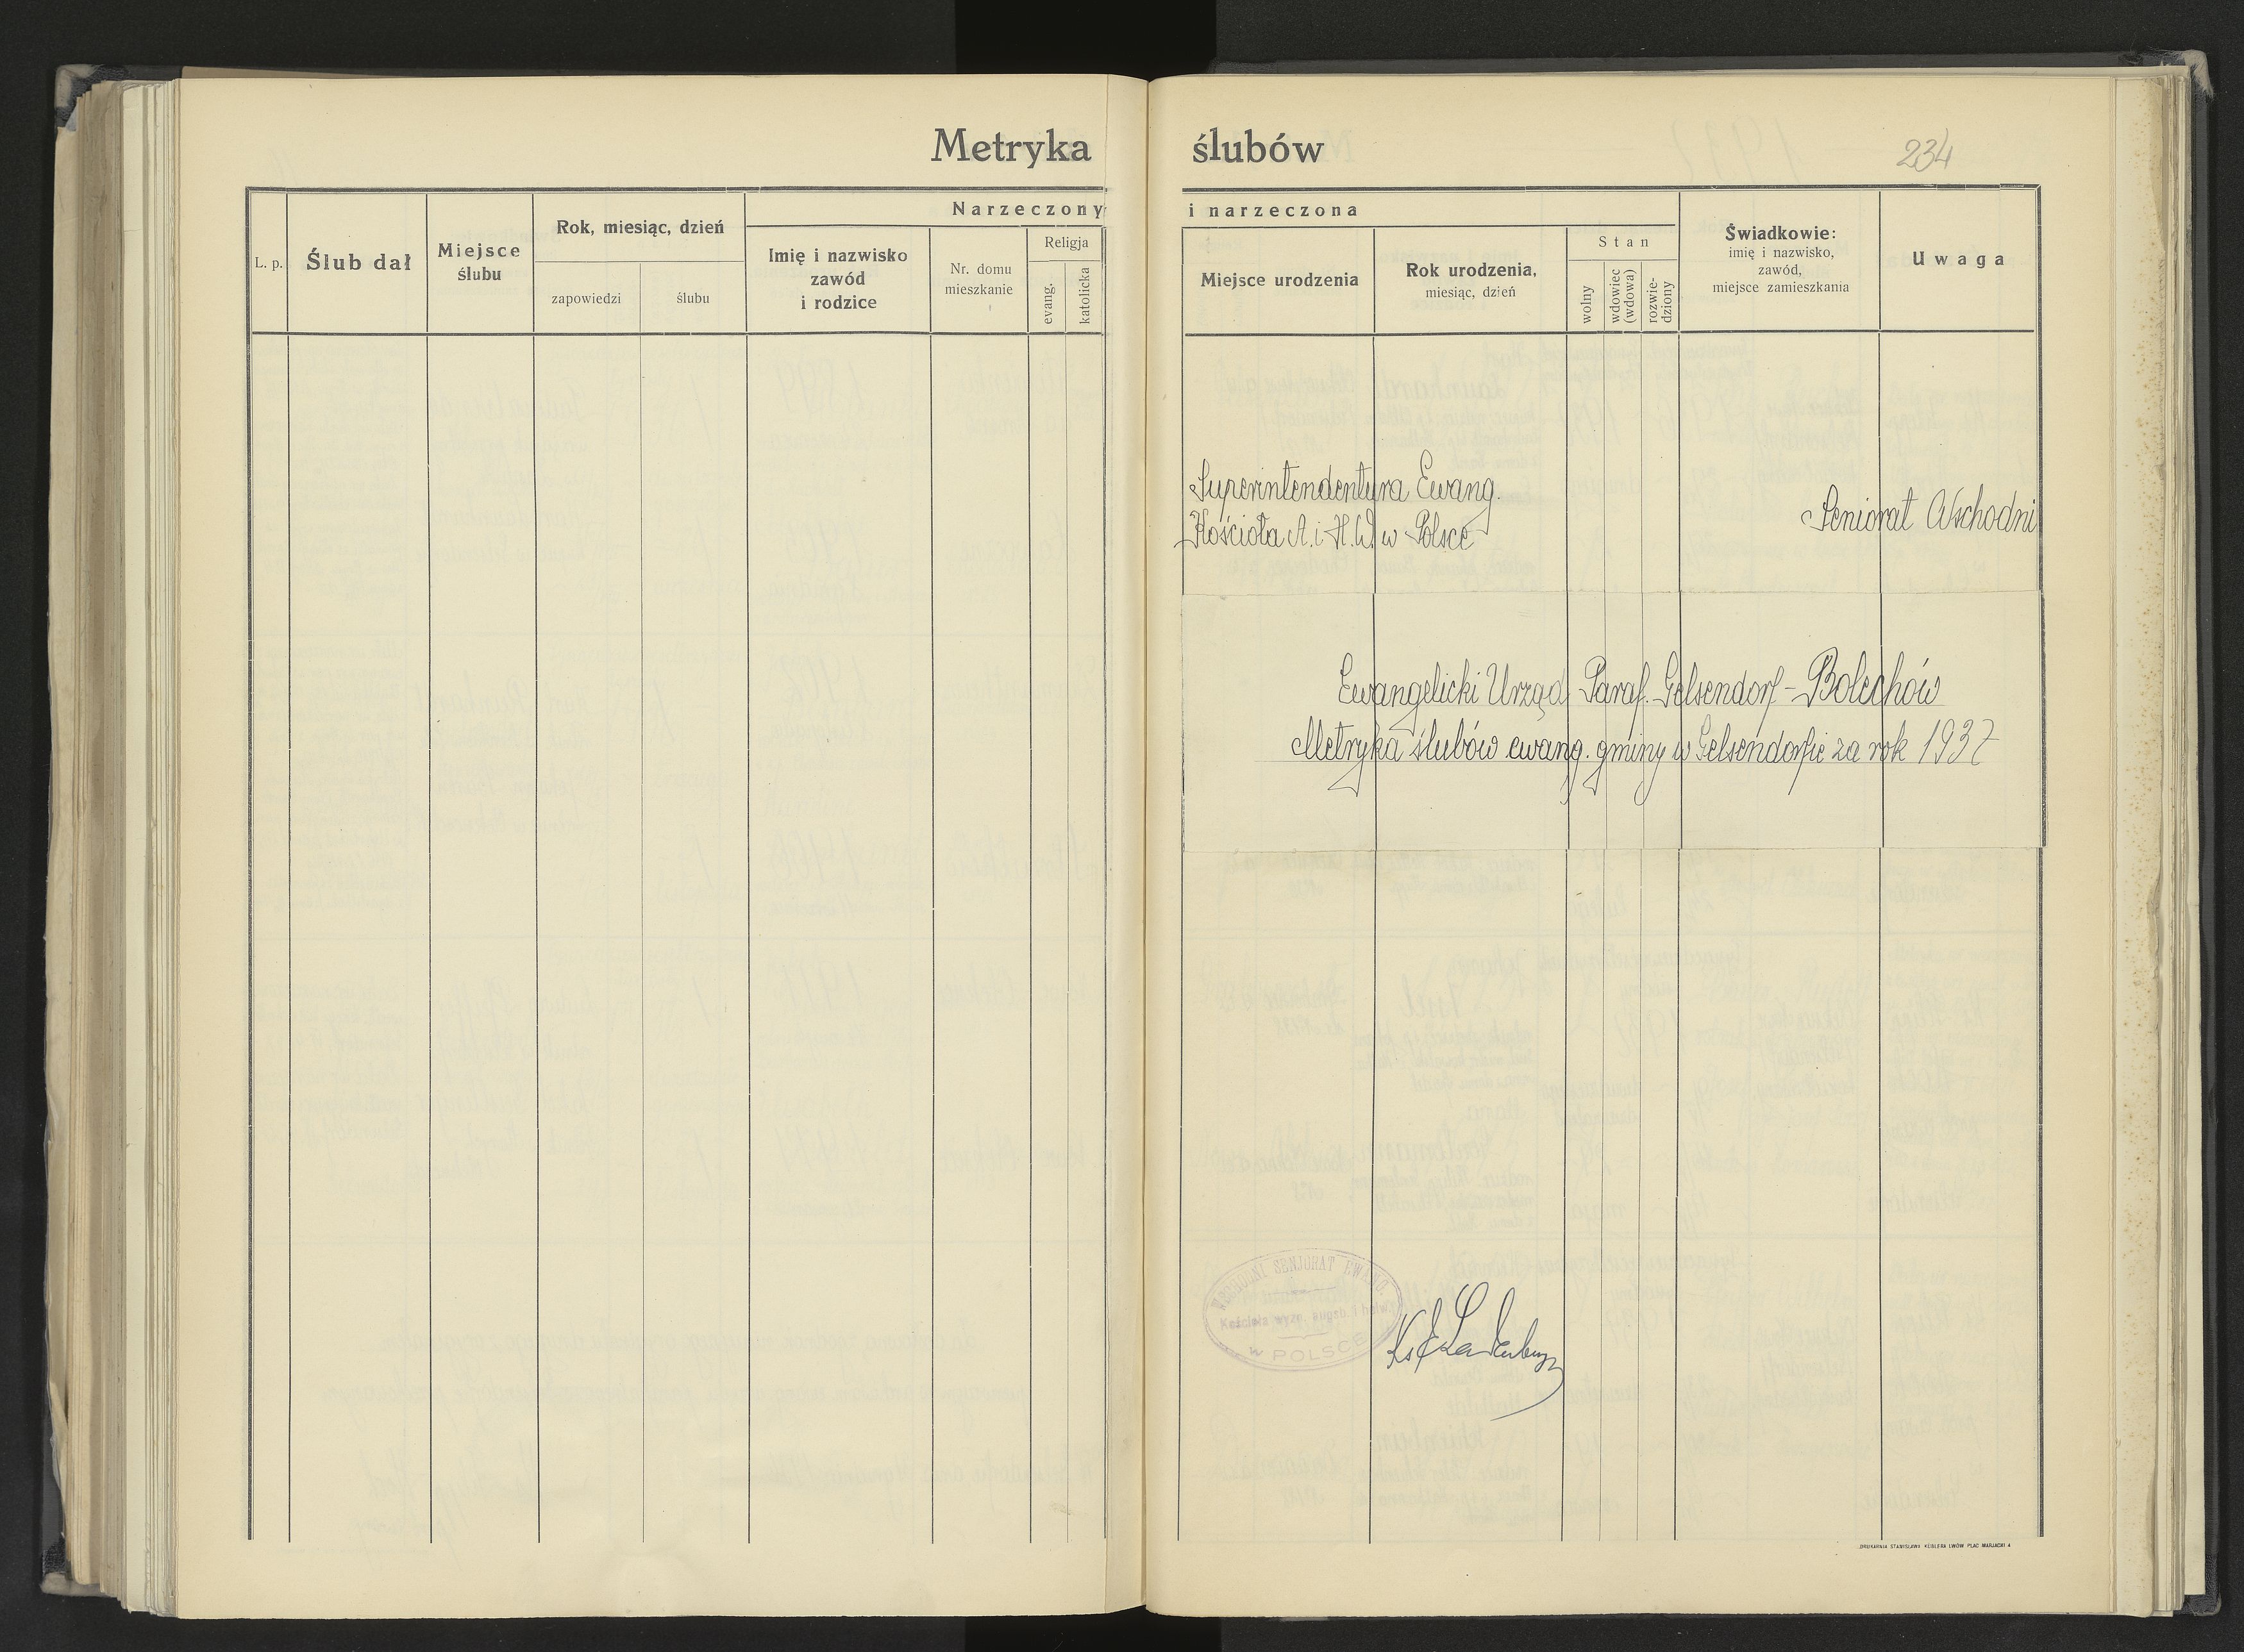 Metryka ślubów
234
L. p.
Ślub dał
Miejsce
ślubu
Rok, miesiąc, dzień
zapowiedzi
ślubu
Narzeczony i narzeczona
Imię i nazwisko
zawód
i rodzice
Nr. domu
mieszkanie
Religja
evang.
katolicka
Miejsce urodzenia
Rok urodzenia,
miesiąc, dzień
Stan
wolny
wdowiec
(wdowa)
rozwie-
dziony
Świadkowie:
imię i nazwisko,
zawód,
miejsce zamieszkania
Uwaga
Superintendentura Ewang.
Kościoła A. i H. W. w Polsce
Seniorat Wschodni
Ewangelicki Urząd Paraf. Gelsendorf - Bolechów
Metryka ślubów ewang. gminy w Gelsendorfie za rok 1937
WSCHODNI SENJORAT EWANG.
Kościoła wyzn. augsb. i helw.
w POLSCE
DRUKARNIA STANISŁAWA KÜBLERA LWÓW PLAC MARJACKI 4